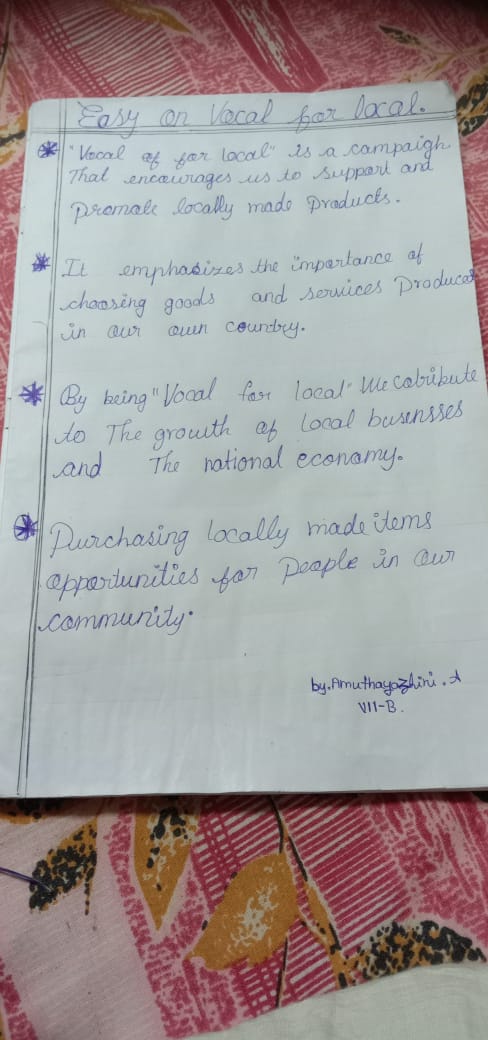 Easy on Vocal for local.
"Vocal of for local" is a campaigh
That encourages us to support and
Promote locally made Products.
It emphasizes the importance of
choosing goods and services Produced
in our own country.
By being "Vocal for local" We cobribute
to The growth of local businsses
and The national economy.
Purchasing locally made items
opportunities for People in our
community.
by. Amuthayazhini . A
VII-B.